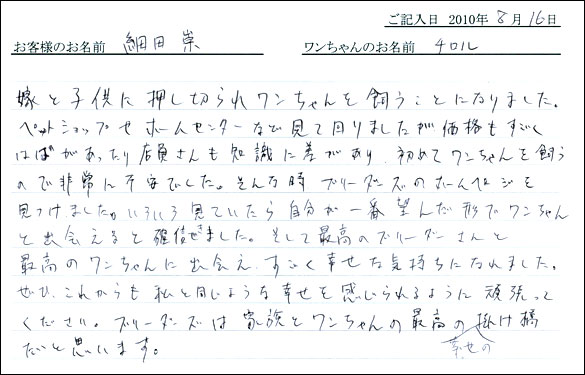 ご記入日 2010年 8月 16日
お客様のお名前 細田 崇 ワンちゃんのお名前 チロル
嫁と子供に押し切られワンちゃんを飼うことになりました。
ペットショップやホームセンターなど見て回りましたが価格もすごく
はばがあったり店員さんも知識に差があり、初めてワンちゃんを飼う
ので非常に不安でした。そんな時ブリーダーズのホームページを
見つけました。いろいろ見ていたら自分が一番望んだ形でワンちゃん
と出会えると確信できました。そして最高のブリーダーさんと
最高のワンちゃんに出会え、すごく幸せな気持ちになれました。
ぜひ、これからも私と同じような幸せを感じられるように頑張って
ください。ブリーダーズは家族とワンちゃんの最高の掛け橋
だと思います。 幸せの